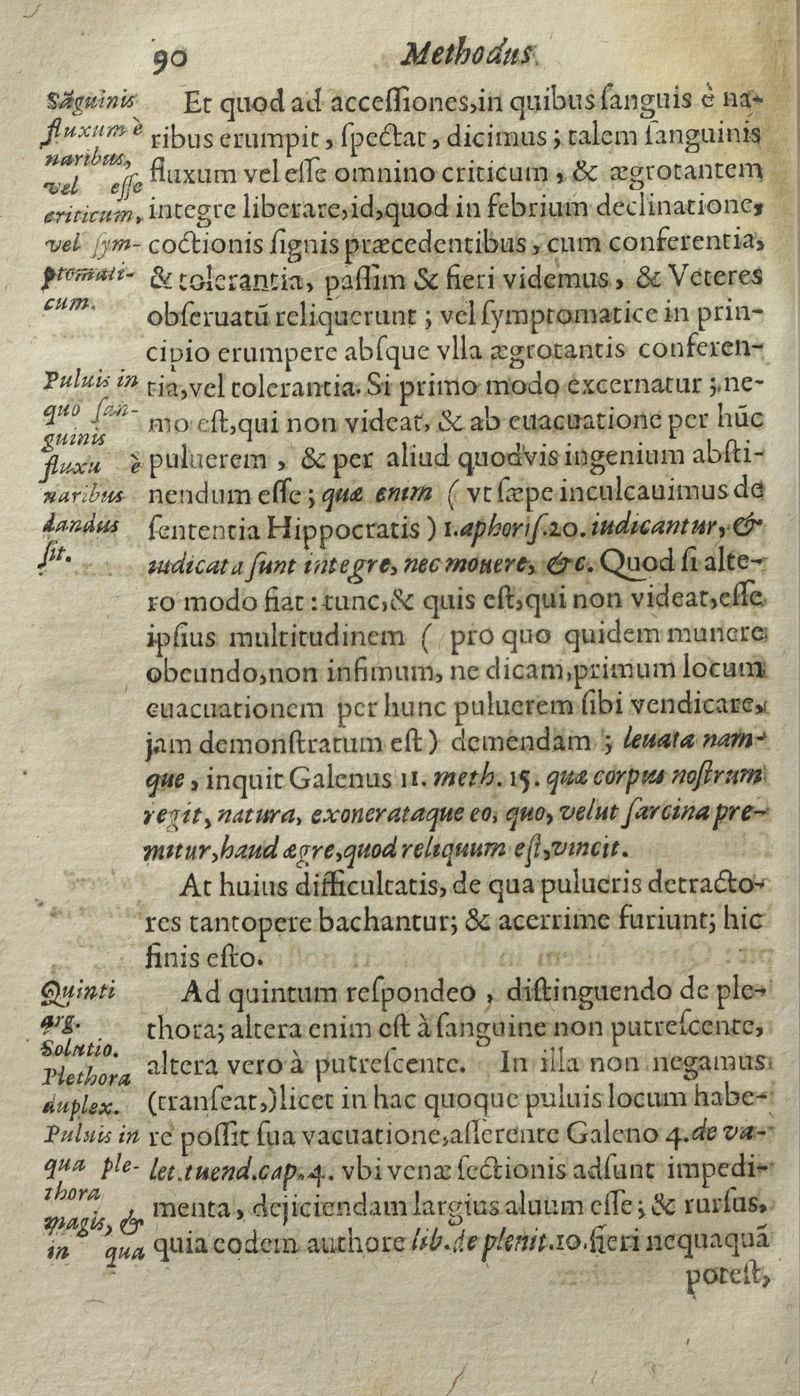 90 Methodus.
Sāguinis
fluxum è
naribus,
vel esse
criticum,
vel sym-
ptomati-
cum.
Et quod ad accessiones,in quibus sanguis è na-
ribus erumpit, spectat, dicimus; talem sanguinis
fluxum vel esse omnino criticum, & ægrotantem
integre liberare,id,quod in febrium declinatione,
coctionis signis præcedentibus, cum conferentia,
& tolerantia, passim & fieri videmus, & Veteres
obseruatū reliquerunt; vel symptomatice in prin-
cipio erumpere absque vlla ægrotantis conferen-
Puluis in
quo san-
guinis
fluxu è
naribus
dandus
sit.
tia,vel tolerantia. Si primo modo excernatur; ne-
mo est,qui non videat, & ab euacuatione per hūc
puluerem, & per aliud quodvis ingenium absti-
nendum esse; quæ enim ( vt sæpe inculcauimus de
sententia Hippocratis ) 1.aphoris.20. iudicantur, &
iudicata sunt integre, nec mouere, &c. Quod si alte-
ro modo fiat: tunc,& quis est,qui non videat,esse
ipsius multitudinem ( pro quo quidem munere
obeundo,non infimum, ne dicam,primum locum
euacuationem per hunc puluerem sibi vendicare,
jam demonstratum est ) demendam; leuata nam-
que, inquit Galenus 11. meth. 15. quæ corpus nostrum
regit, natura, exonerataque eo, quo, velut sarcina pre-
mitur,haud ægre,quod reliquum est,vincit.
At huius difficultatis, de qua pulueris detracto-
res tantopere bachantur; & acerrime furiunt; hic
finis esto.
Quinti
arg.
Solutio.
Plethora
duplex.
Ad quintum respondeo, distinguendo de ple-
thora; altera enim est à sanguine non putrescente,
altera vero à putrescente. In illa non negamus
(transeat,)licet in hac quoque puluis locum habe-
Puluis in
qua ple-
thora
magis, &
in qua
re possit sua vacuatione,asserente Galeno 4.de va-
let.tuend.cap.4. vbi venæ sectionis adsunt impedi-
menta, dejiciendam largius aluum esse; & rursus,
quia eodem authore lib.de plenit.10.fieri nequaquā
potest,